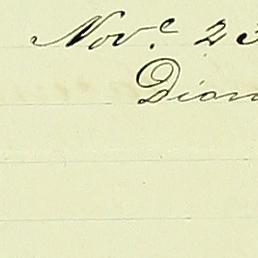 Nov.e 23
Dian